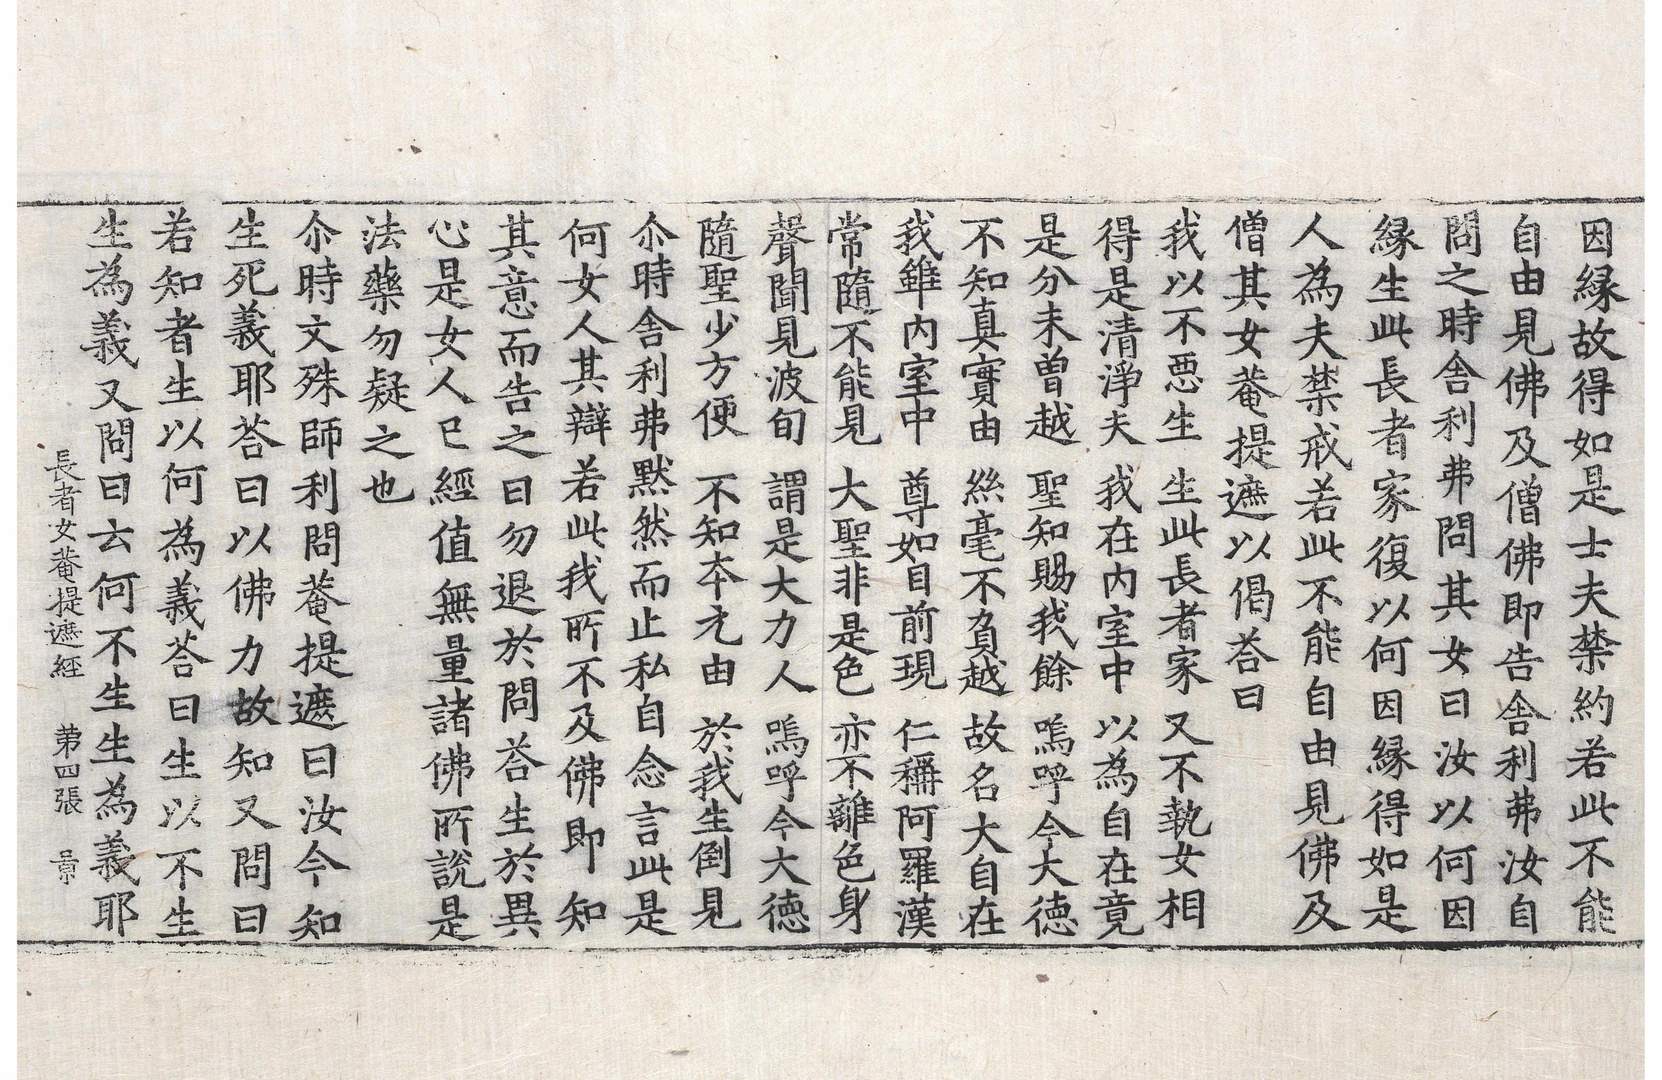 因縁故得如是士夫禁約若此不能
自由見佛及僧佛即告舍利弗汝自
問之時舍利弗問其女曰汝以何因
縁生此長者家復以何因縁得如是
人為夫禁戒若此不能自由見佛及
僧其女菴提遮以偈荅曰
我以不惡生　生此長者家　又不執女相
得是清淨夫　我在內室中　以為自在竟
是分未曾越　聖知賜我餘　嗚呼今大德
不知真實由　絲毫不負越　故名大自在
我雖內室中　尊如目前現　仁稱阿羅漢
常隨不能見　大聖非是色　亦不離色身
聲聞見波旬　謂是大力人　嗚呼今大德
隨聖少方便　不知本元由　於我生倒見
尒時舍利弗默然而止私自念言此是
何女人其辯若此我所不及佛即知
其意而告之曰勿退於問荅生於異
心是女人已經值無量諸佛所說是
法藥勿疑之也
尒時文殊師利問菴提遮曰汝今知
生死義耶荅曰以佛力故知又問曰
若知者生以何為義荅曰生以不生
生為義又問曰云何不生生為義耶
長者女菴提遮經　第四張　景